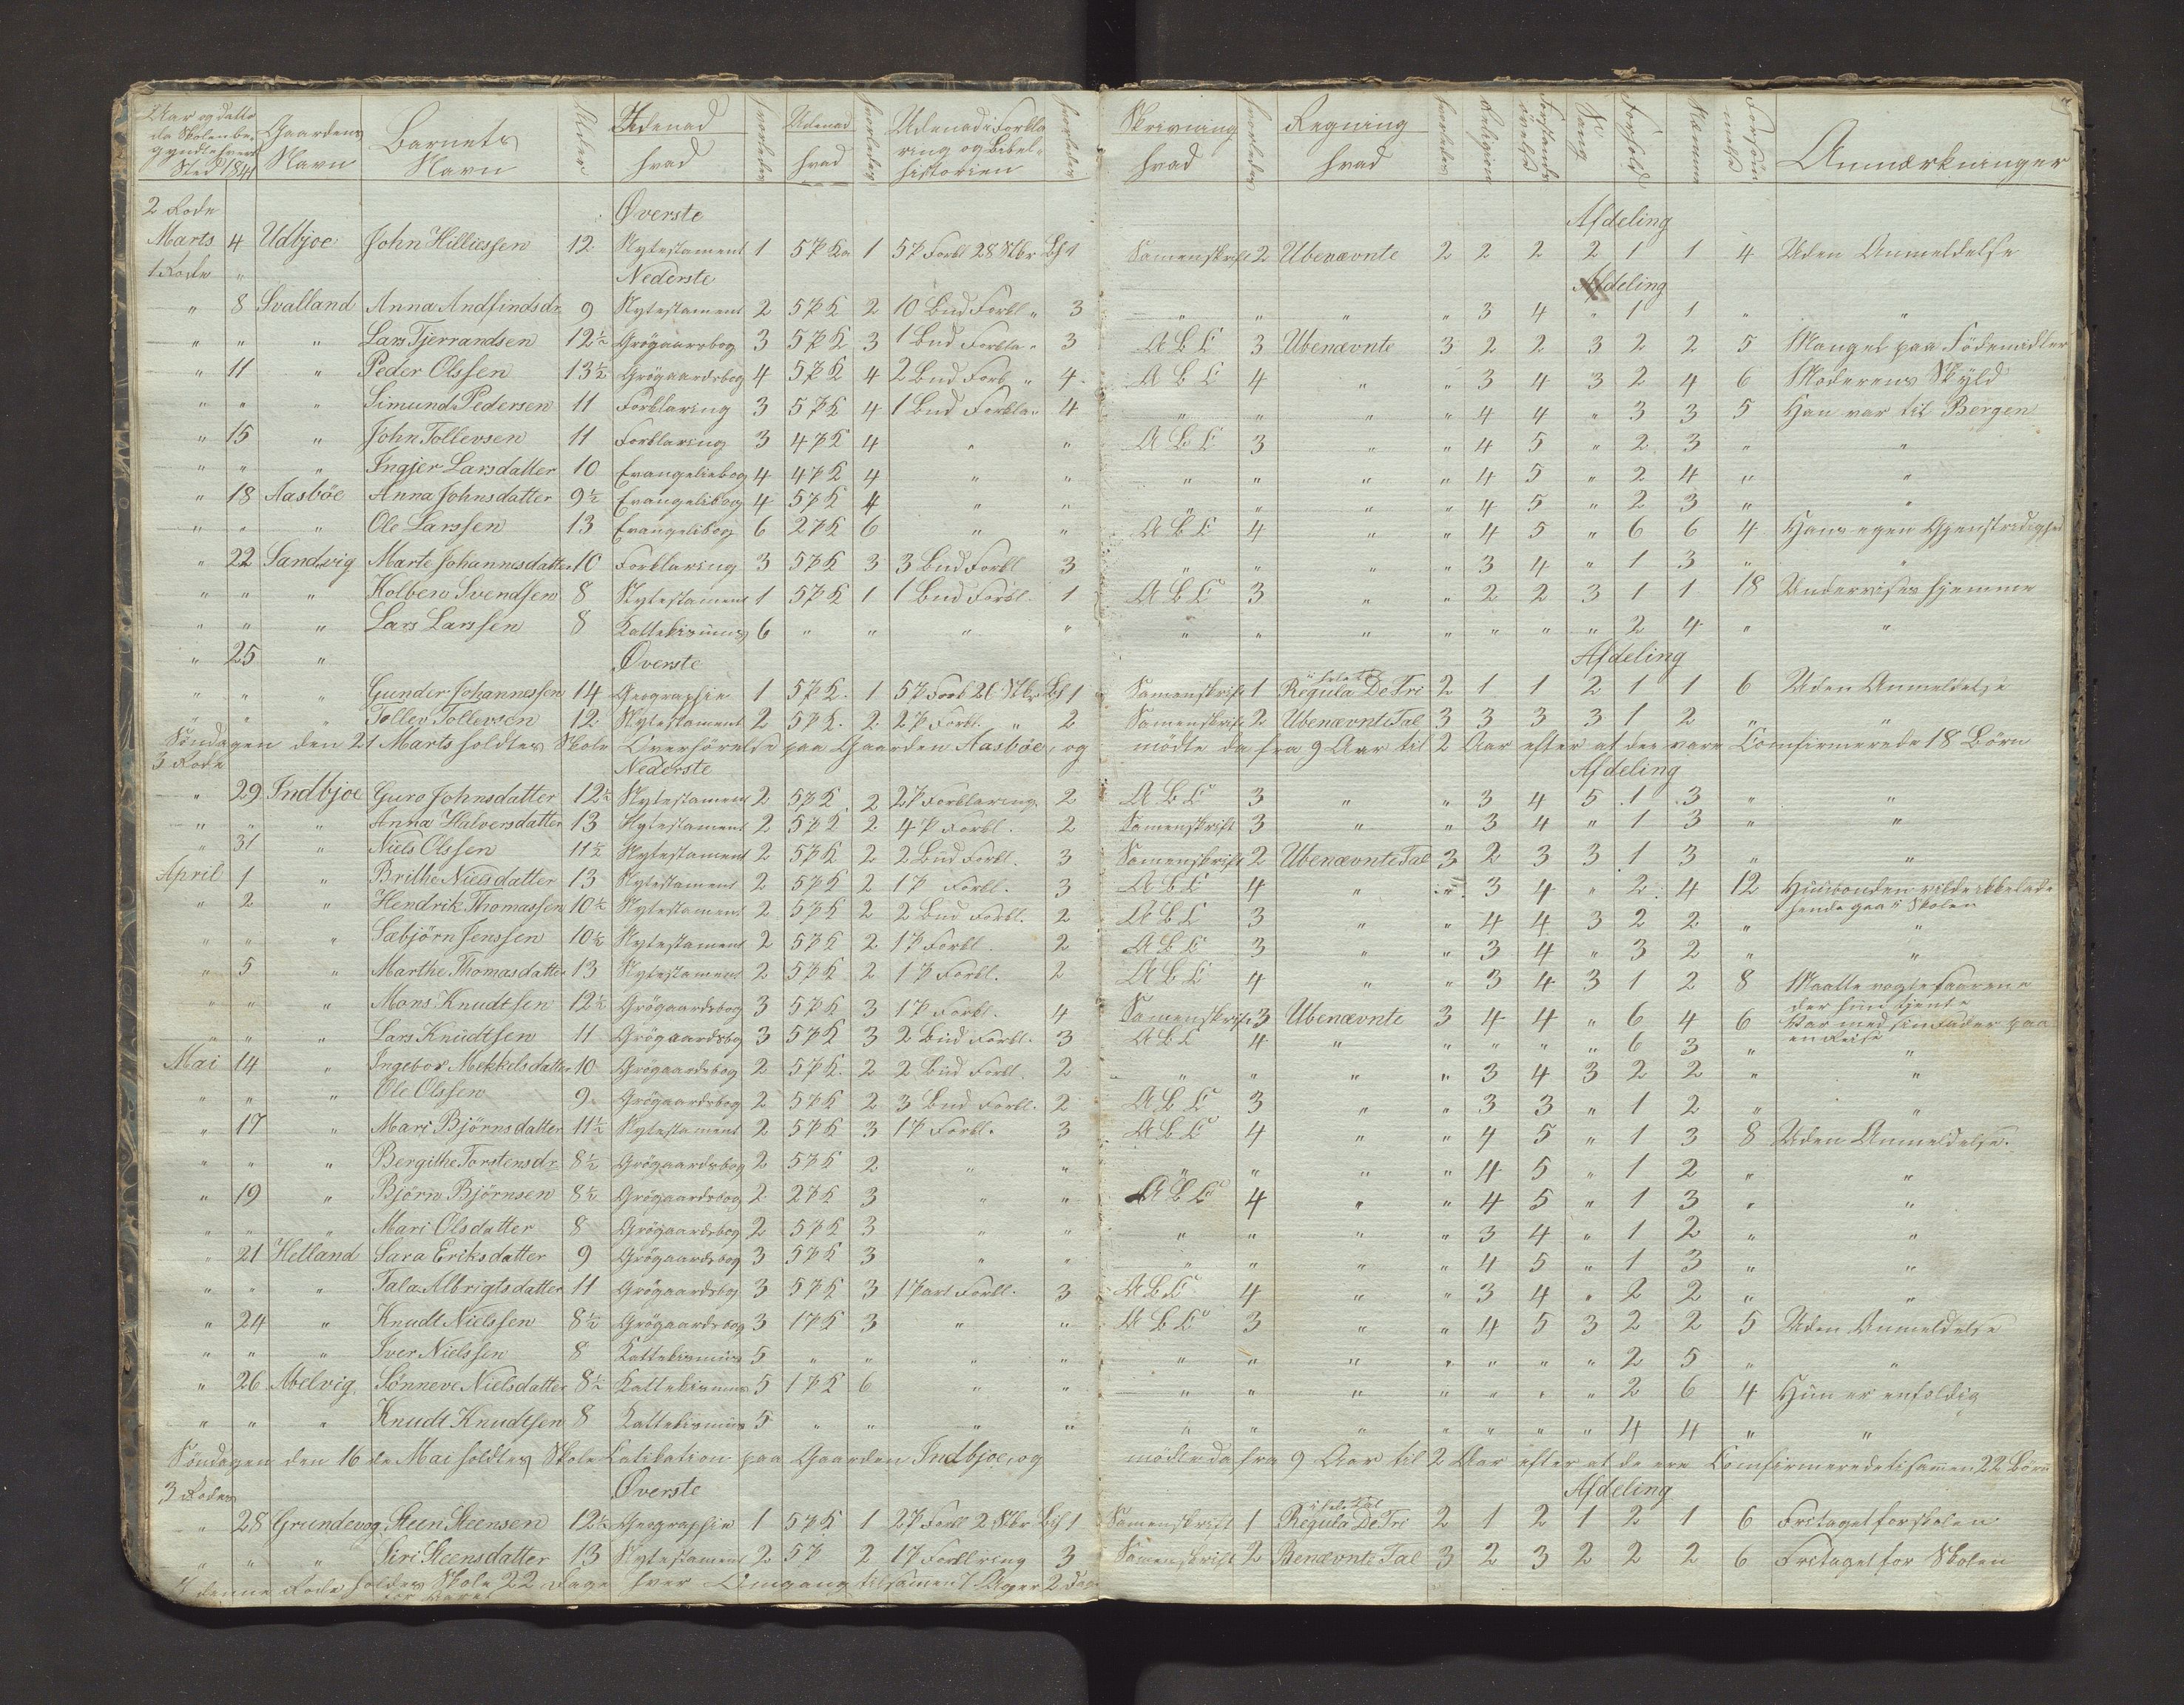 Aar og datto da Skolen be- gyndte hvert Sted 1841 | Gaardens Navn | Barnets Navn | Alder | Udenad hvad | hvorledes | Udenad hvad | hvorledes | Udenad i Forkla ring og Bibel- historien | hvorledes | Skrivning hvad | hvorledes | Regning hvad | hvorledes | Religion | Forstands övelse | Sang | Forhold | Nemme | Forsöm melse | Anmærkninger
2 Rode Øverste Afdeling
Marts 4 Udbjoe John Hilliessen 12 Nytestament 1 5 P 1 5 P Forkl 28 Stkr Bh 1 Samenskrift 2 Ubenævnte 2 2 2 2 1 1 4 Uden Anmeldelse
1 Rode " Nederste Afdeling
" 8 Svalland Anna Andfindsdr 9 Nytestament 2 5 P K 2 10 Bud Forkl " 3 " " " " 3 4 " 1 1 " "
" " " Lars Tjerrandsen 12½ Grögaardsbog 3 5 P K 3 1 Bud Forkla " 3 A B C 3 Ubenævnte 3 2 2 3 2 2 5 Mangel paa Födemidler
" 11 " Peder Olssen 13½ Grögaardsbog 4 5 P K 4 2 Bud Forkl " 4 A B C 4 " " 3 4 3 2 4 6 Moderens Skyld
" " " Simund Pedersen 11 Forklaring 3 5 P K 4 1 Bud Forkla " 4 " " " " 4 4 " 3 3 5 Han var til Bergen
" 15 " John Tollevsen 11 Forklaring 3 4 P K 4 " " A B C 3 " " 4 5 " 2 3 " "
" " " Ingjer Larsdatter 10 Evangeliebog 4 4 P K 4 " " " " " " 4 5 " 2 4 " "
" 18 Aasböe Anna Johnsdatter 9½ Evangelibog 4 5 P K 4 " " " " " " 4 5 " 2 3 " "
" " " Ole Larssen 13 Evangelibog 6 2 P K 6 " " A B C 4 " " 4 5 " 6 6 4 Hans egen Gjenstridighed
" 22 Sandvig Marte Johannesdatter 10 Forklaring 3 5 P K 3 3 Bud Forkl 3 " " " " 3 4 " 1 3 " "
" " " Kolbein Svendsen 8 Nytestament 1 5 P K 1 1 Bud Forkl. 1 A B C 3 " " 2 2 3 1 1 18 Undervises hjemme
" " " Lars Larssen 8 Kattekismus 6 " " " " " " " " " " " 2 4 " "
" 25 " Øverste Afdeling
" " " Gunder Johannessen 14 Geographie 1 5 P K. 1 5 P Forkl 26 Stkr Bh 1 Samenskrift 1 Regula De Tri i hele tal 2 1 1 2 1 1 6 Uden Anmeldelse
" " " Tollev Tollevsen 12 Nytestament 2 5 P K. 2 2 P Forkl. " 2 Samenskrift 2 Ubenævnte Tal 3 3 3 3 1 2 " "
Söndagen den 21 Marts holdtes Skole Overhörelse paa Gaarden Aasböe, og mödte da fra 9 Aar til 2 Aar efter at de vare Comfirmerede 18 Börn
3 Rode Nederste Afdeling
" 29 Indbjoe Guro Johnsdatter 12½ Nytestament 2 5 P K 2 2 P Forklaring 2 A B C 3 " " 3 4 5 1 3 " "
" " " Anna Halversdatter 13 Nytestament 2 5 P K 2 4 P Forkl. 2 Samenskrift 3 " " 3 4 " 1 3 " "
" 31 " Niels Olssen 11½ Nytestament 2 5 P K 2 2 Bud Forkl. 3 Samenskrift 2 Ubenævnte Tal 3 2 3 3 1 3 " "
April 1 " Brithe Nielsdatter 13 Nytestament 2 5 P K 2 1 P Forkl. 3 A B C 4 " " 3 4 " 2 4 12 Husbonden vilde ikke lade hende gaa i Skolen
" 2 " Hendrik Thomassen 10½ Nytestament 2 5 P K 2 2 Bud Forkl. 2 A B C 3 " " 4 4 3 2 2 " "
" " " Sæbjörn Jenssen 10½ Nytestament 2 5 P K 2 1 P Forkl. 2 A B C 3 " " 3 4 " 3 2 " "
" 5 " Marthe Thomasdatter 13 Nytestament 2 5 P K 2 1 P Forkl. 2 A B C 4 " " 3 4 3 1 2 8 Maatte vogte Faarene der hun tjente
" " " Mons Knudtsen 12½ Grögaardsbog 3 5 P K 3 1 P Forkl. 4 Samenskrift 3 Ubenævnte 3 4 4 " 6 4 6 Var med sin Fader paa en Reise
" " " Lars Knudtsen 11 Grögaardsbog 3 5 P K 3 2 Bud Forkl. 3 A B C 4 " " " " " 6 3 " "
Mai 14 " Ingebor Mekkelsdatter 10 Grögaardsbog 2 5 P K. 2 2 Bud Forkl. 2 " " " " 3 4 3 2 2 " "
" " " Ole Olssen 9 Grögaardsbog 2 5 P K 2 3 Bud Forkl. 2 A B C 3 " " 3 3 " 1 2 " "
" 17 " Mari Björnsdatter 11½ Nytestament 2 5 P K 3 1 P Forkl. 3 A B C 4 " " 4 5 " 1 3 8 Uden Anmeldelse.
" " " Bergithe Torstensdr 8½ Grögaardsbog 2 5 P K 2 " " " " " " 4 5 " 1 2 " "
" 19 " Björn Björnsen 8½ Grögaardsbog 2 2 P K 3 " " A B C 4 " " 4 5 " 1 3 " "
" " " Mari Olsdatter 8 Grögaardsbog 2 5 P K 3 " " " " " " 3 4 " 1 2 " "
" 21 Helland Sara Eriksdatter 9 Grögaardsbog 3 5 P K 3 " " " " " " 4 5 " 1 3 " "
" " " Tala Albrigtsdatter 11 Grögaardsbog 3 5 P K 3 1 Part Forkl. 3 A B C 4 " " 3 4 " 2 2 " "
" 24 " Knudt Nielssen 8½ Grögaardsbog 3 1 P K 3 " " A B C 3 " " 4 5 3 2 2 5 Uden Anmeldelse
" " " Iver Nielssen 8 Kattekismus 5 " " " " " " " " " " " 2 5 " "
" 26 Melvig Sönneve Nielsdatter 8½ Kattekismus 5 1 P K 6 " " " " " " " " " 2 6 4 Hun er enfoldig
" " " Knudt Knudtsen 8 Kattekismus 5 " " " " " " " " " " " 4 4 " "
Söndagen den 16 de Mai holdtes Skole Catikation paa Gaarden Indbjoe, og mödte da fra 9 Aar til 2 Aar efter at de ere Comfirmerede tilsammen 22 Börn
3 Rodes Øverste Afdeling
" 28 Grundevog Steen Steensen 12½ Geographie 1 5 P K 1 2 P Forkl 2 Stkr Bih 1 Samenskrift 1 Regula De Tri i hele tal 2 1 2 1 2 1 6 Fritaget for skolen
" " " Siri Steensdatter 13 Nytestament 2 5 P 2 1 P Forklring 3 Samenskrift 2 Benævnte Tal 3 2 3 2 2 2 6 Fritaget for Skolen
I denne Rode holdes Skole 22 Dage hver Omgang tilsamen 7 Uger 2 Dage for Aaret